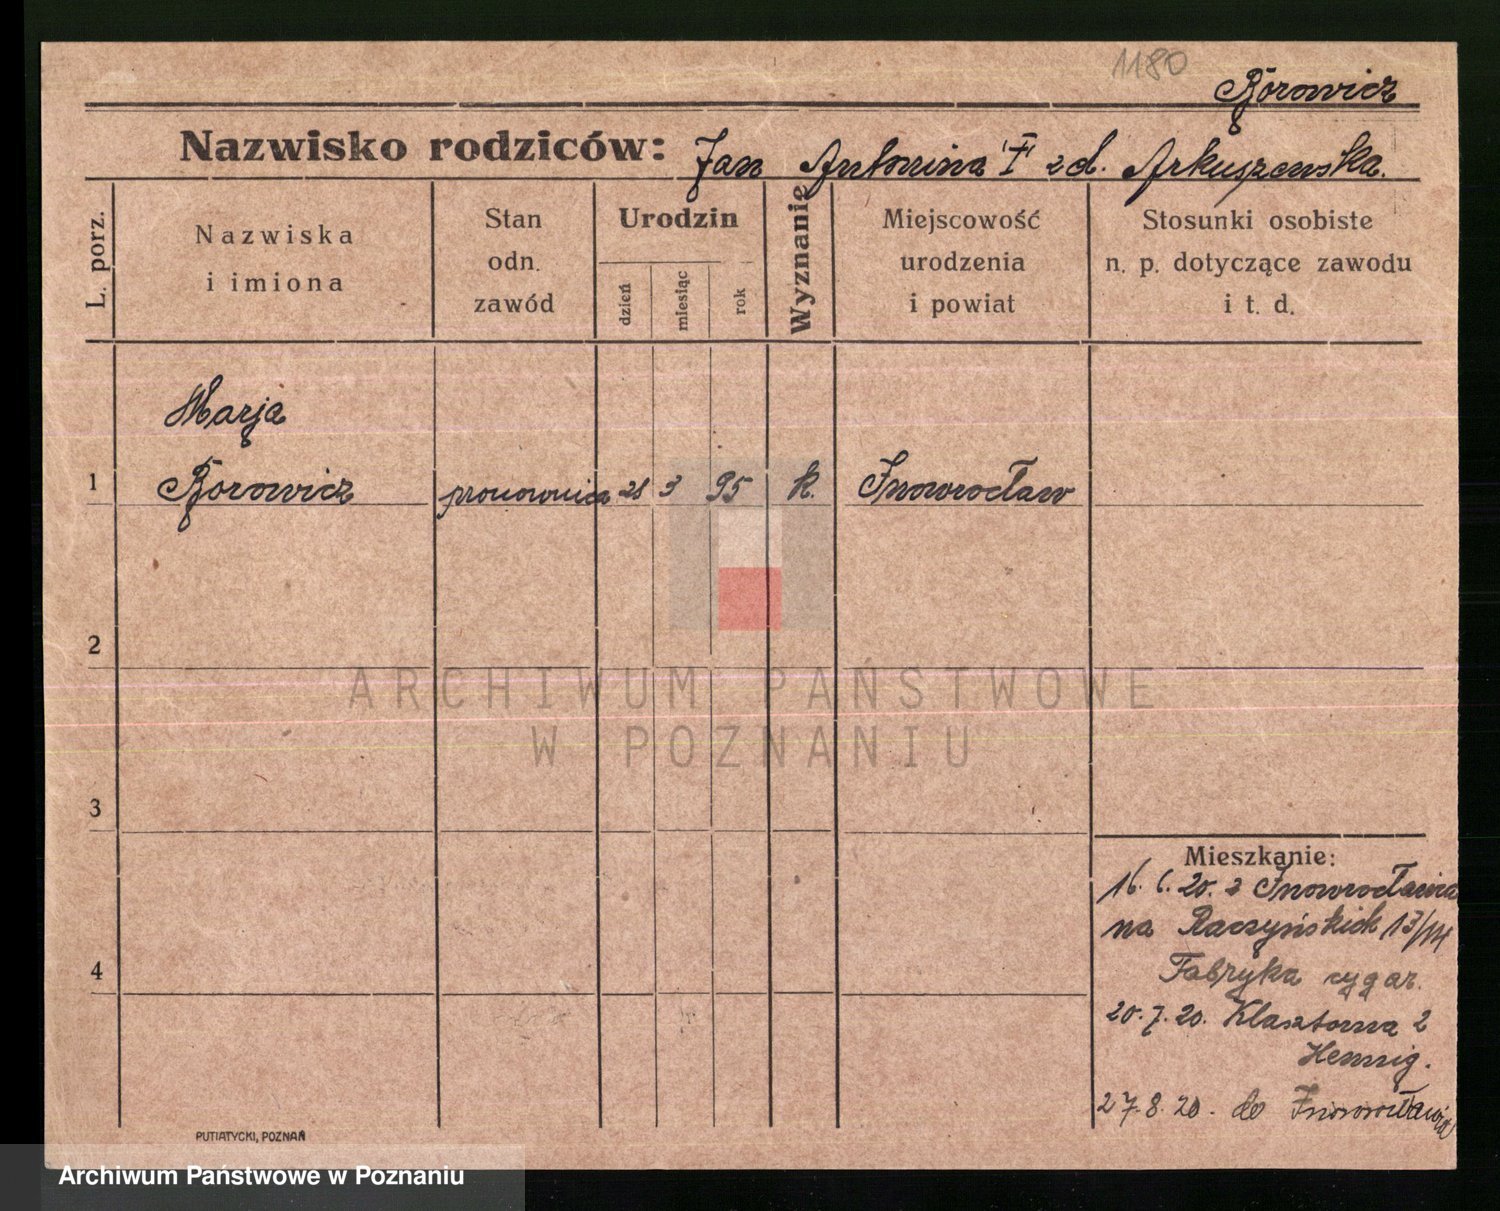 1180
Borowicz
Nazwisko rodziców: Jan Antonina 'F' zd. Arkuszewska.
L. porz.
Nazwiska
i imiona
Stan
odn.
zawód
Urodzin
dzień
miesiąc
rok
Wyznanie
Miejscowość
urodzenia
i powiat
Stosunki osobiste
n. p. dotyczące zawodu
i t. d.
Marja
1 Borowicz 3 95 k. Inowrocław
2
3
4
ARCHIWUM PAŃSTWOWE
W POZNANIU
Mieszkanie:
16. 6. 20. z Inowrocławia
na Raczyńskich 13/14
Fabryka cygar.
20. 7. 20. Klasztorna 2
Hennig.
27. 8. 20. do Inowrocławia
PUTIATYCKI, POZNAŃ
Archiwum Państwowe w Poznaniu